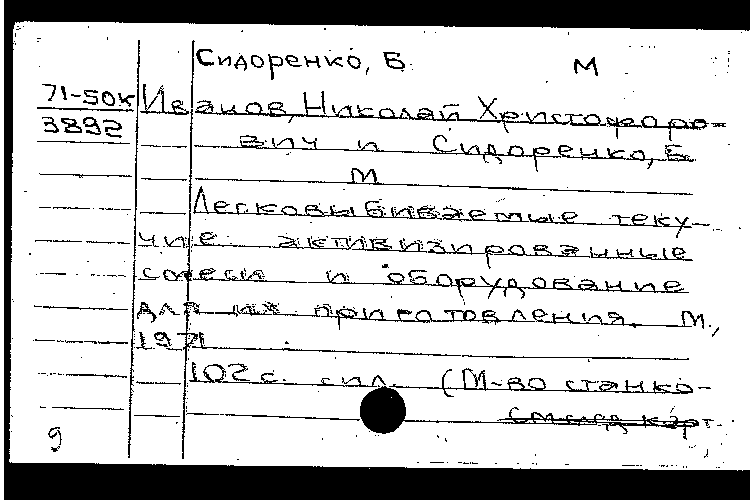 Сидоренко, Б. М
71-50к Иванов, Николай Христофоро-
3892 вич и Сидоренко, Б.
М
Легковыбиваемые теку-
чие активизированные
смеси и оборудование
для их приготовления. М.,
1971.
102 с. с ил. (М-во станко-
см. след. карт.
9